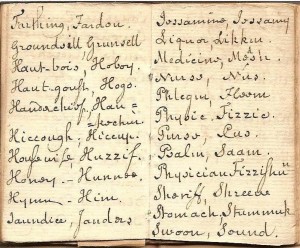 Farthing, Fardon.
Groundsell Grunsell
Haut-bois, Hoboy.
Haut-goust, Hogo.
Handkerchief, Han-
kecher
Hiccough; Hiccup.
Housewife Huzzif.
Honey - Hunnee
Hymn - Him.
Jaundice, Janders
Jossamine, Jossamy
Liquor, Likkur
Medicine, Med'sn.
Nurse, Nus.
Phlegm, Fleem
Physic, Fizzic.
Purse, Pus.
Psalm, Saam.
Physician Fizzishu
Sheriff, Shreeve
Stomach Stummuk
Swoon, Sound.